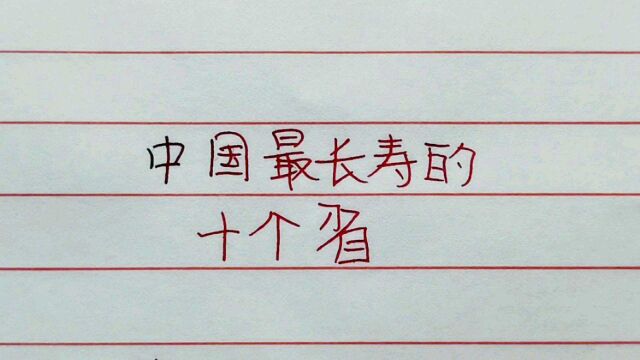 中国最长寿的
十个省